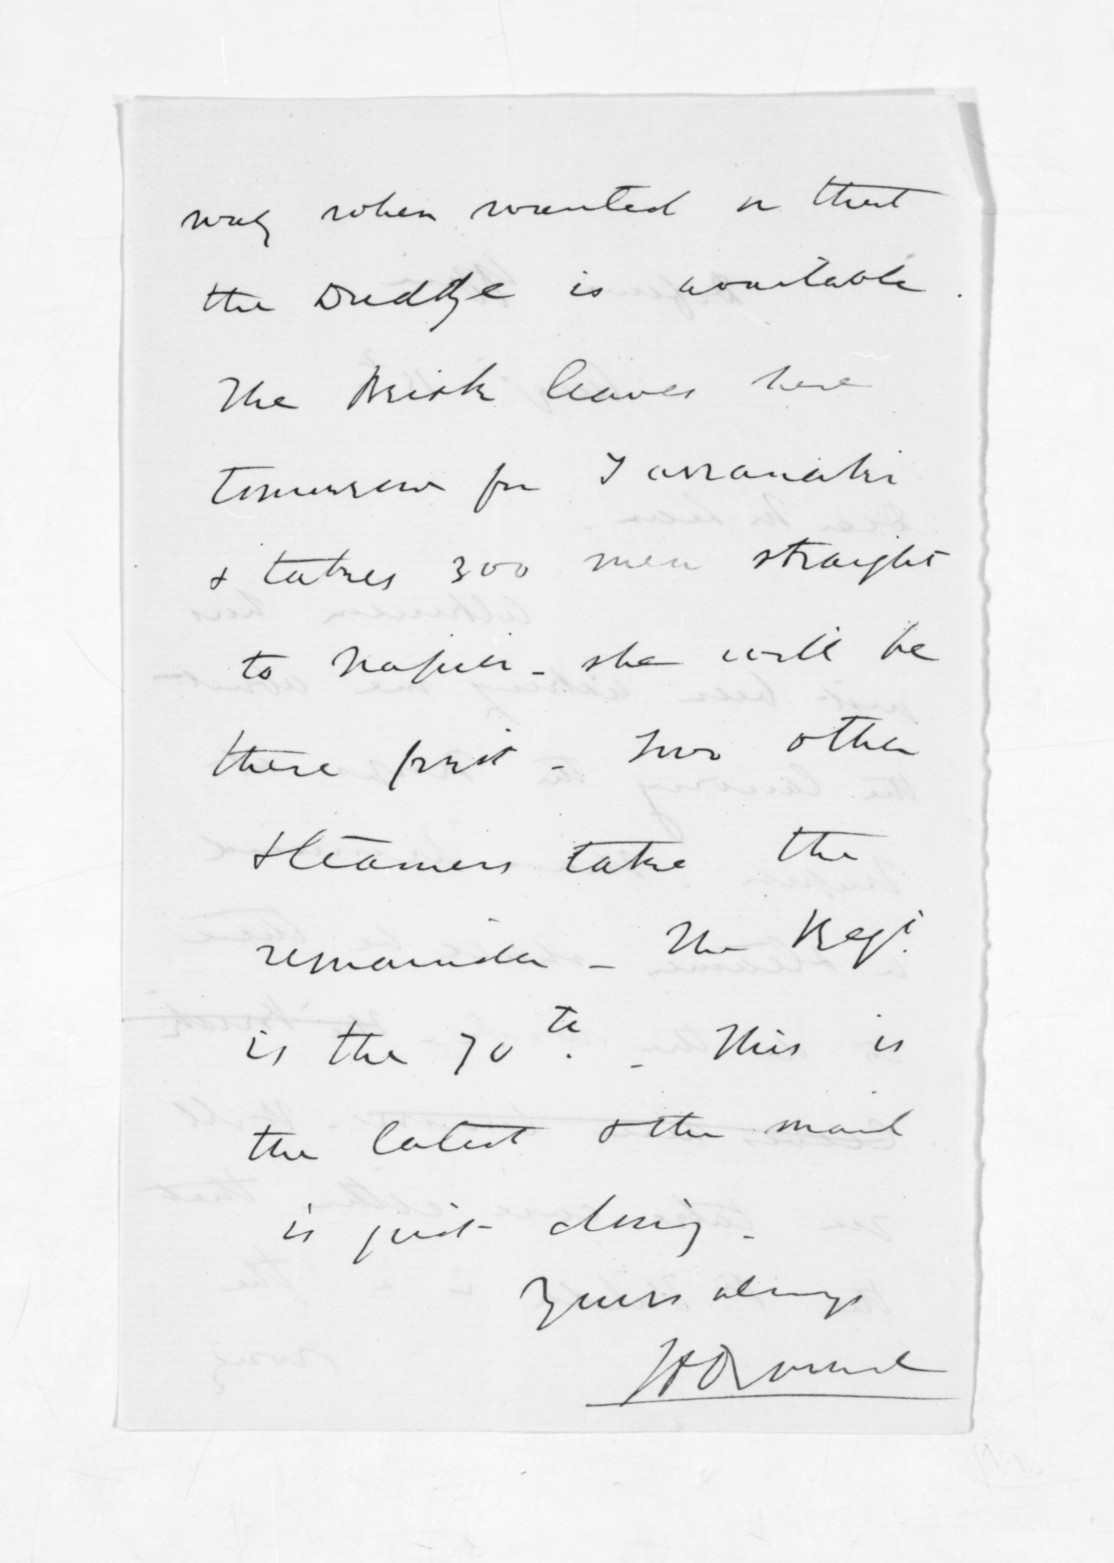 way when wanted or that
the Dredge is available.
The Brisk leaves here
tomorrow for Tarranaki
& takes 300 men straight
to Napier - she will be
there first - Two other
steamers take the
remainder - The Regt.
is the 70th. - This is
the latest & the mail
is just closing -
Yours always
JDOrmond